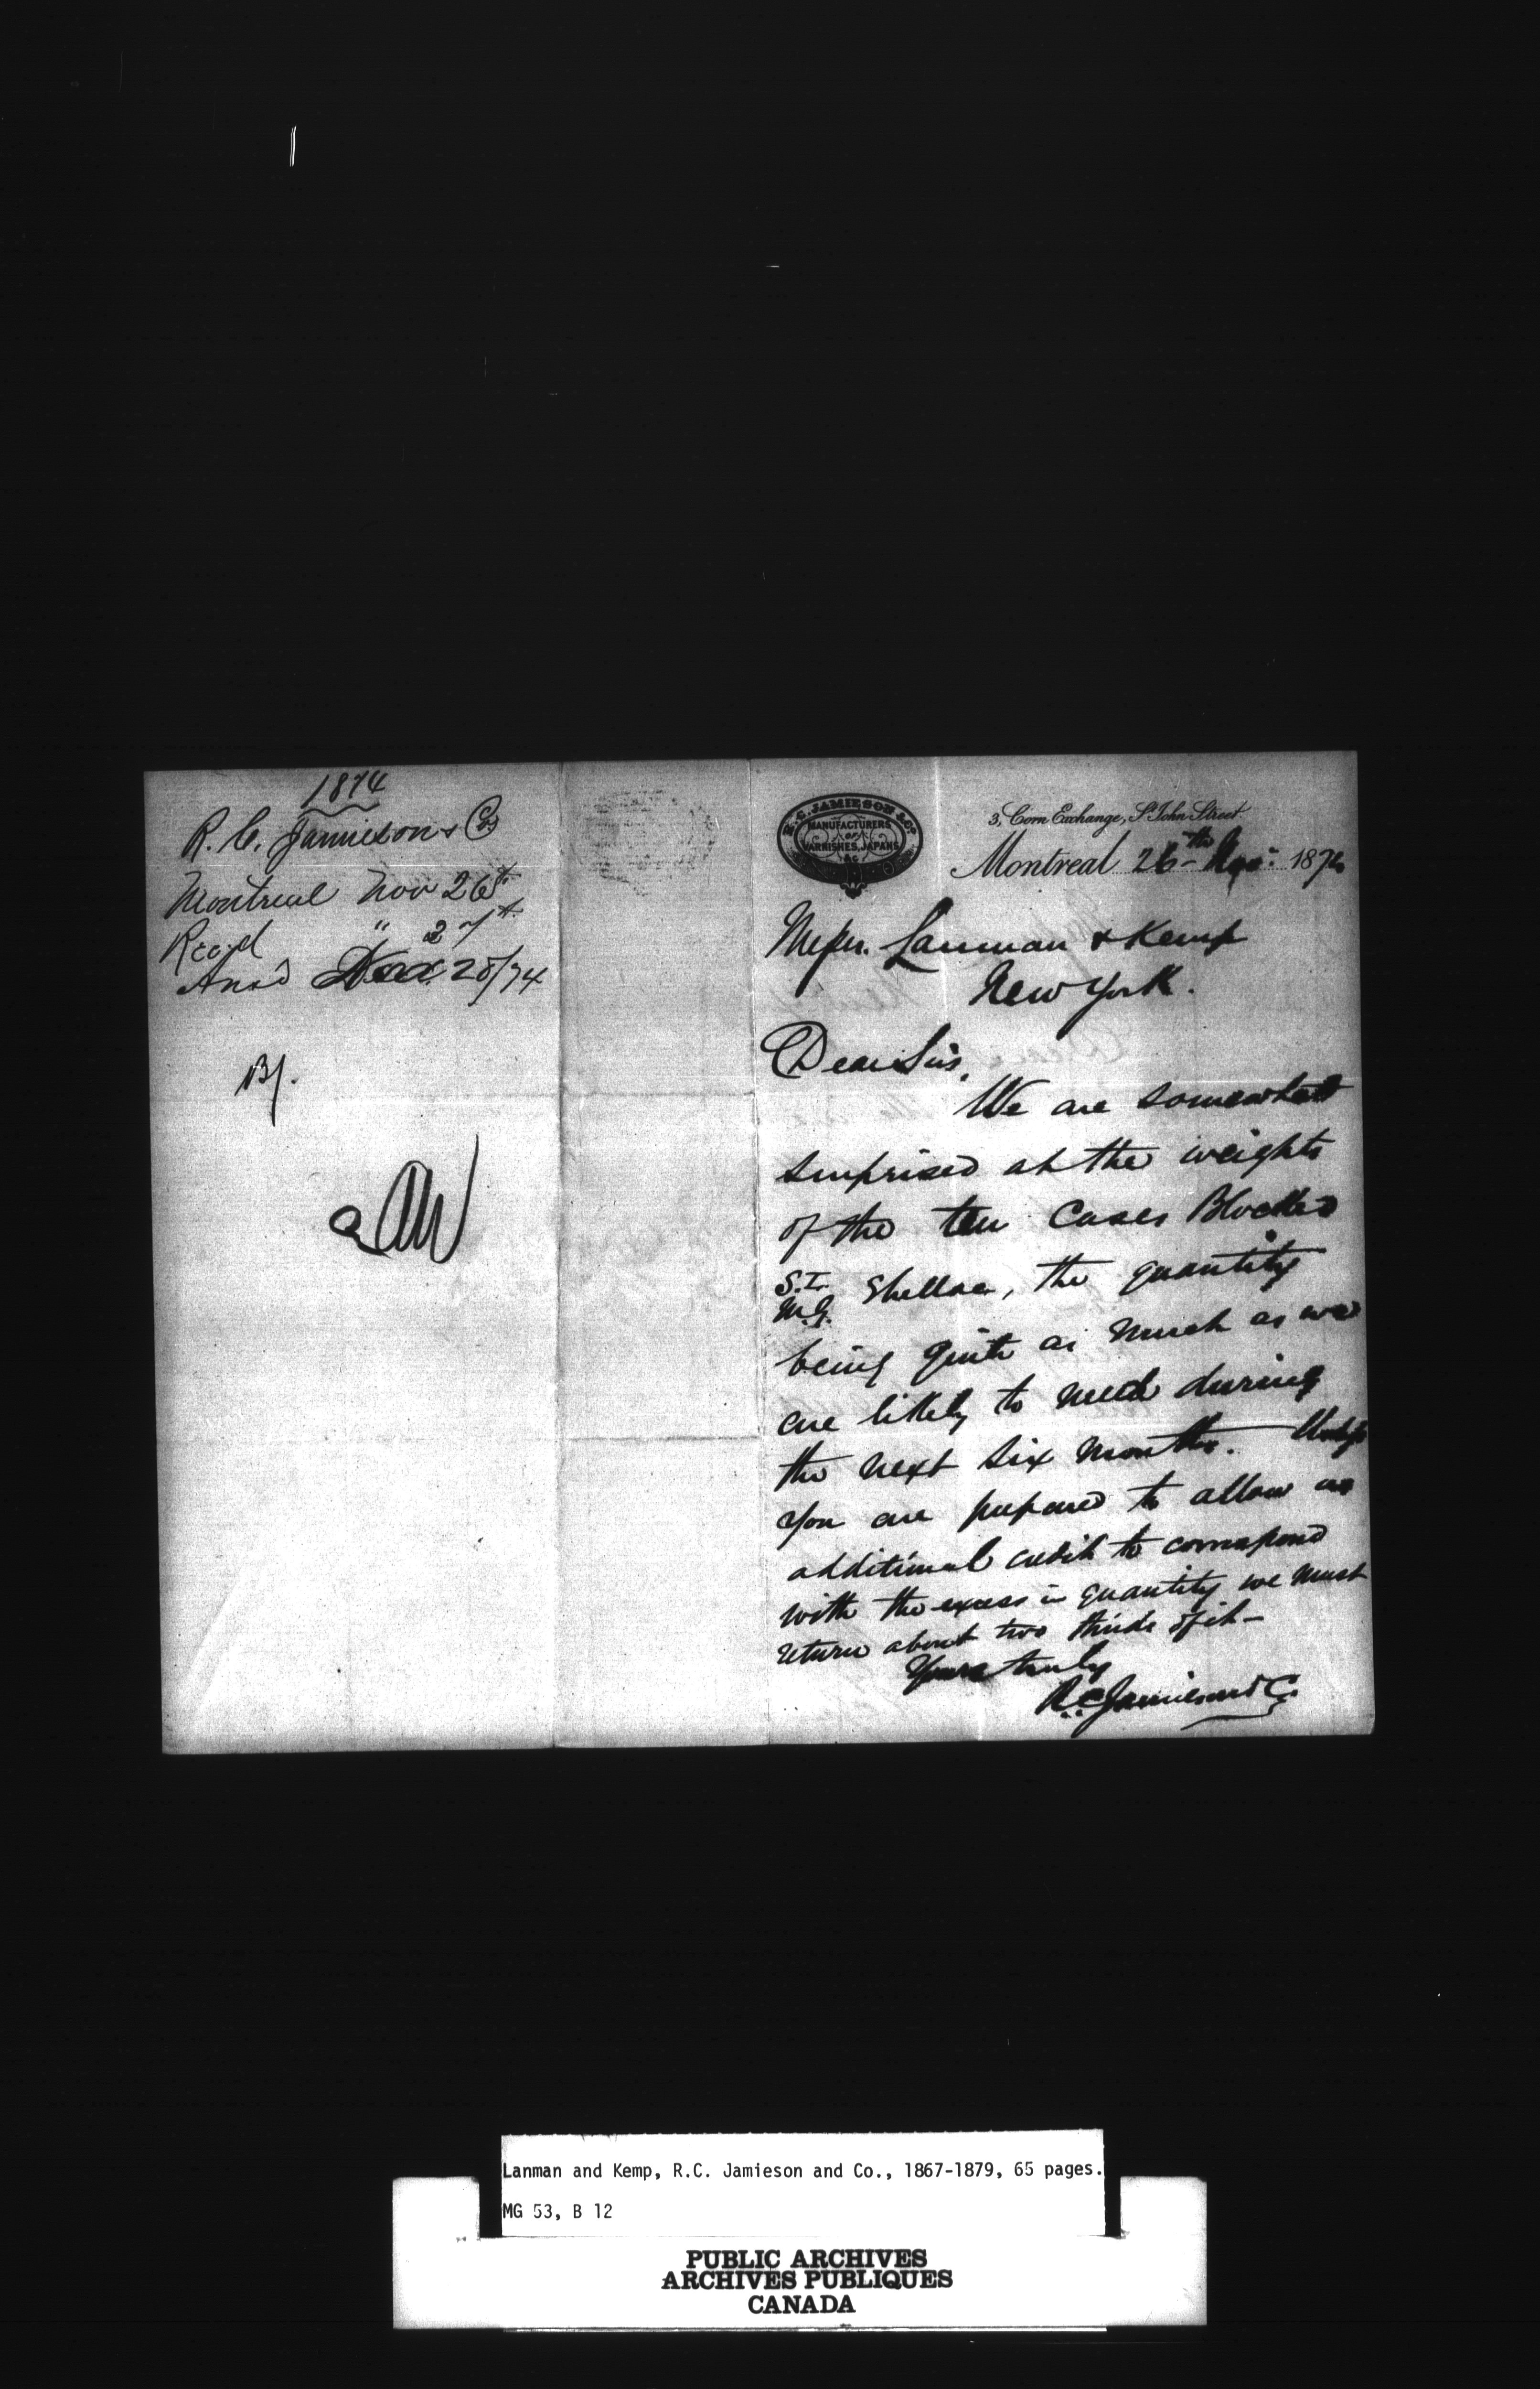 1874
R. C. Jamieson & Co
Montreal Nov 26th
Recd " 27th
Ansd 28/74
B/.
R.C. JAMIESON & Co.
MANUFACTURERS
OF
VARNISHES, JAPANS
&c
3, Corn Exchange, St John Street.
Montreal 26th Nov: 1874
Messrs. Lanman & Kemp
New York.
Dear Sirs,
We are somewhat
surprised at the weights
of the ten Cases Blocked
S.I.
M.G. Shellac, the quantity
being quite as much as we
are likely to need during
the next six months. Unless
you are prepared to allow us
additional credit to correspond
with the excess in quantity we must
return about two thirds of it—
Yours truly
R.C. Jamieson & Co.
Lanman and Kemp, R.C. Jamieson and Co., 1867-1879, 65 pages.
MG 53, B 12
PUBLIC ARCHIVES
ARCHIVES PUBLIQUES
CANADA